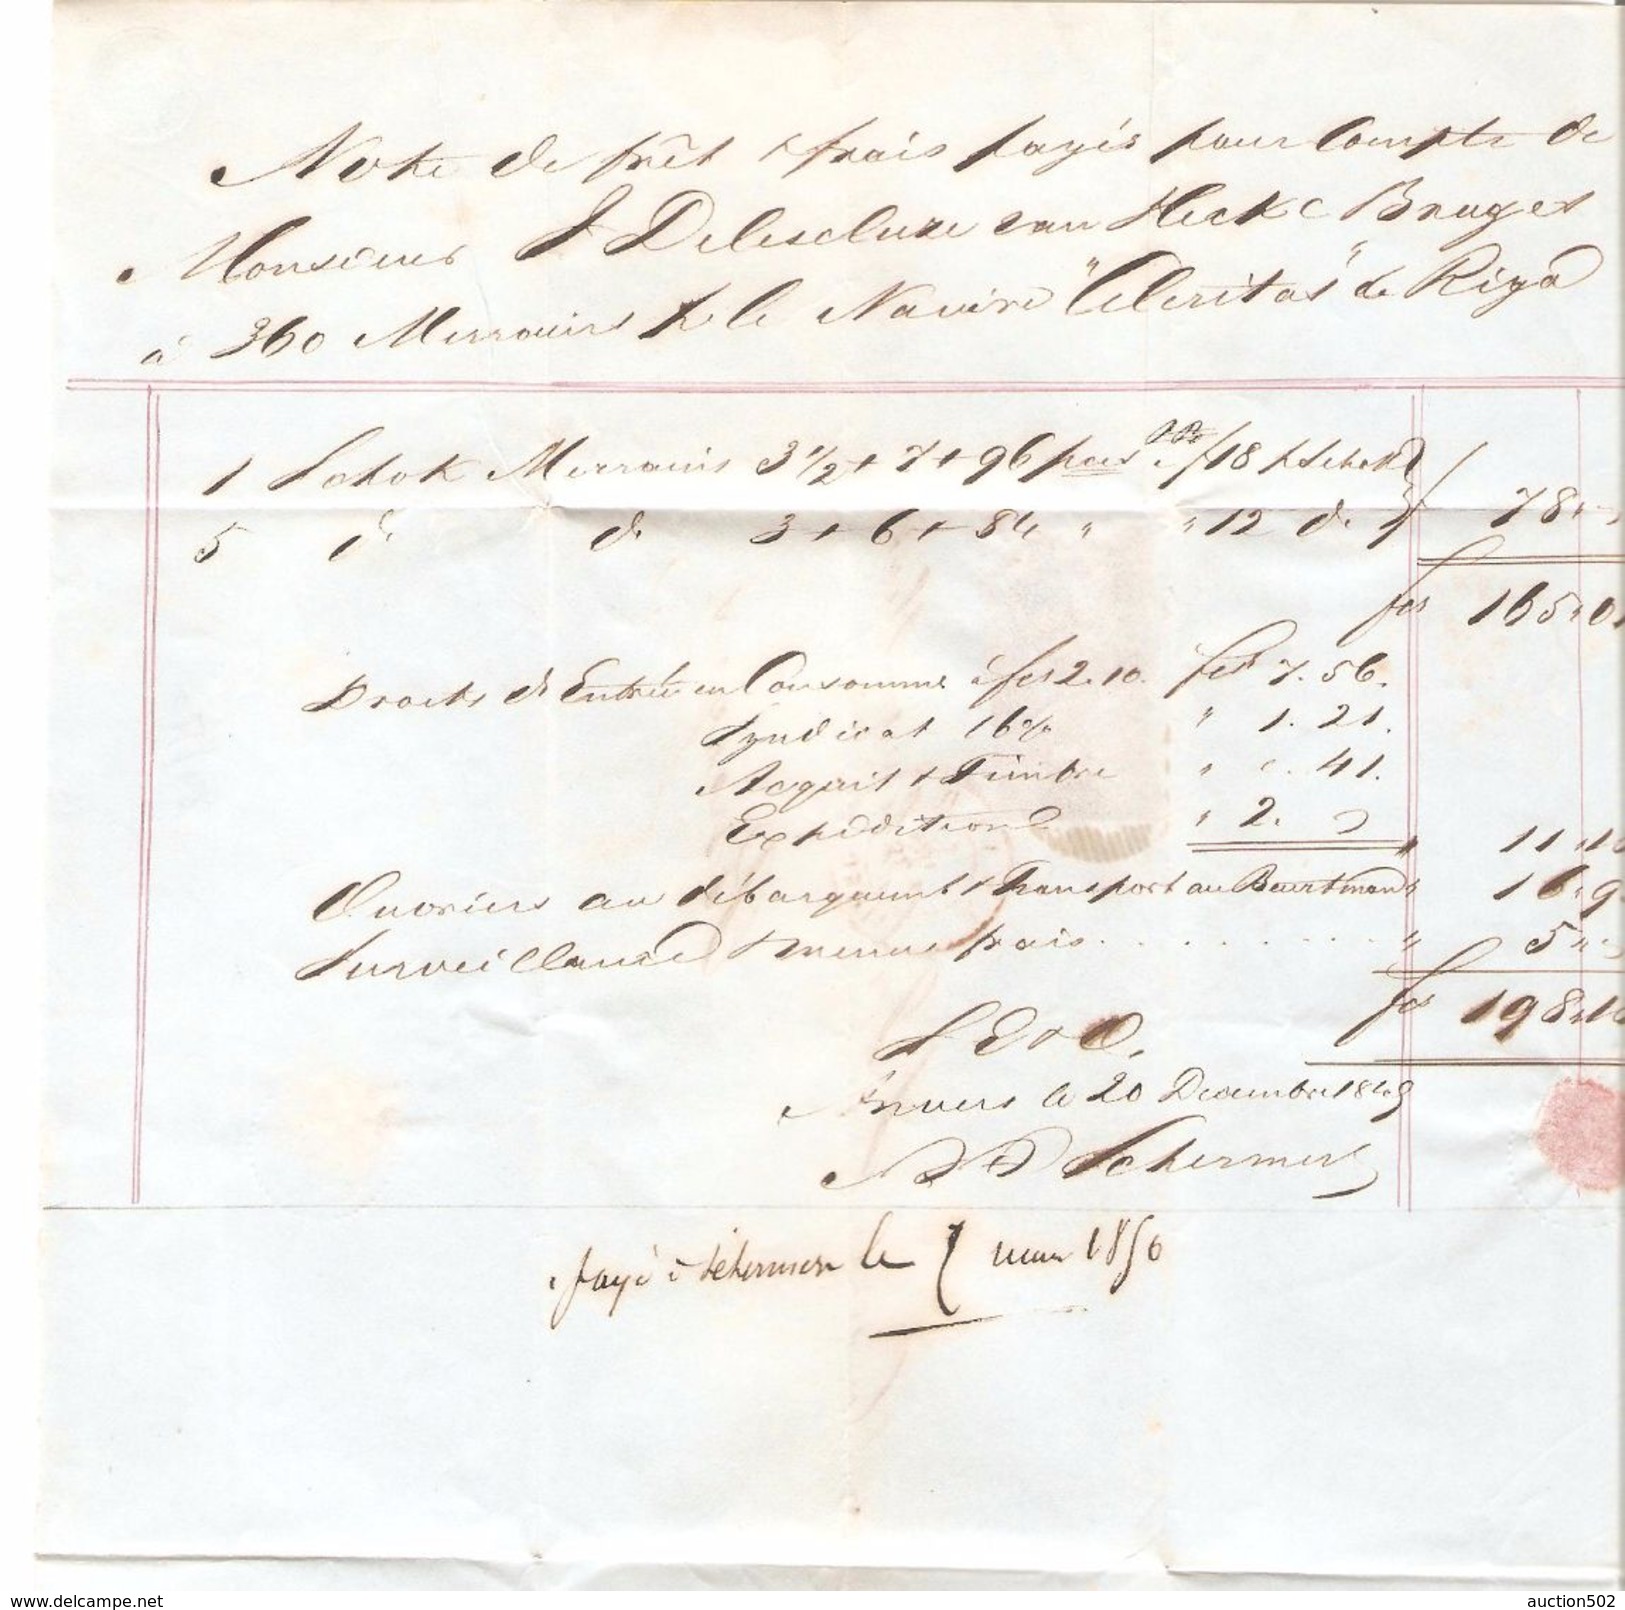 Note de frêt & frais payés pour Compte de
Monsieur J Delescluze van Hecke Bruges
à 360 Merrains p le Navire "Celeritas" de Riga
1 Schok Merrains 3½ + 7 + 96 pour f 18 p Schok
5 do do 3 + 6 + 84 " " 12 do f 78 " -
fcs 165 " 0
Droits d'Entrée en Consomme à fcs 2.10. fcs 7.56.
Syndicat 16% " 1.21.
Acquit & Timbre " . 41.
Expédition " 2. " 11 " 1
Ouvriers au débarquement & Transport au Beurtman " 16 " 9
Surveillance & menus frais . . . . . . . . " 5 " -
fcs 198 " 1
S E & O.
Anvers le 20 Decembre 1849
Schermers
payé à Schermers le 7 mars 1850
www.delcampe.net
auction502